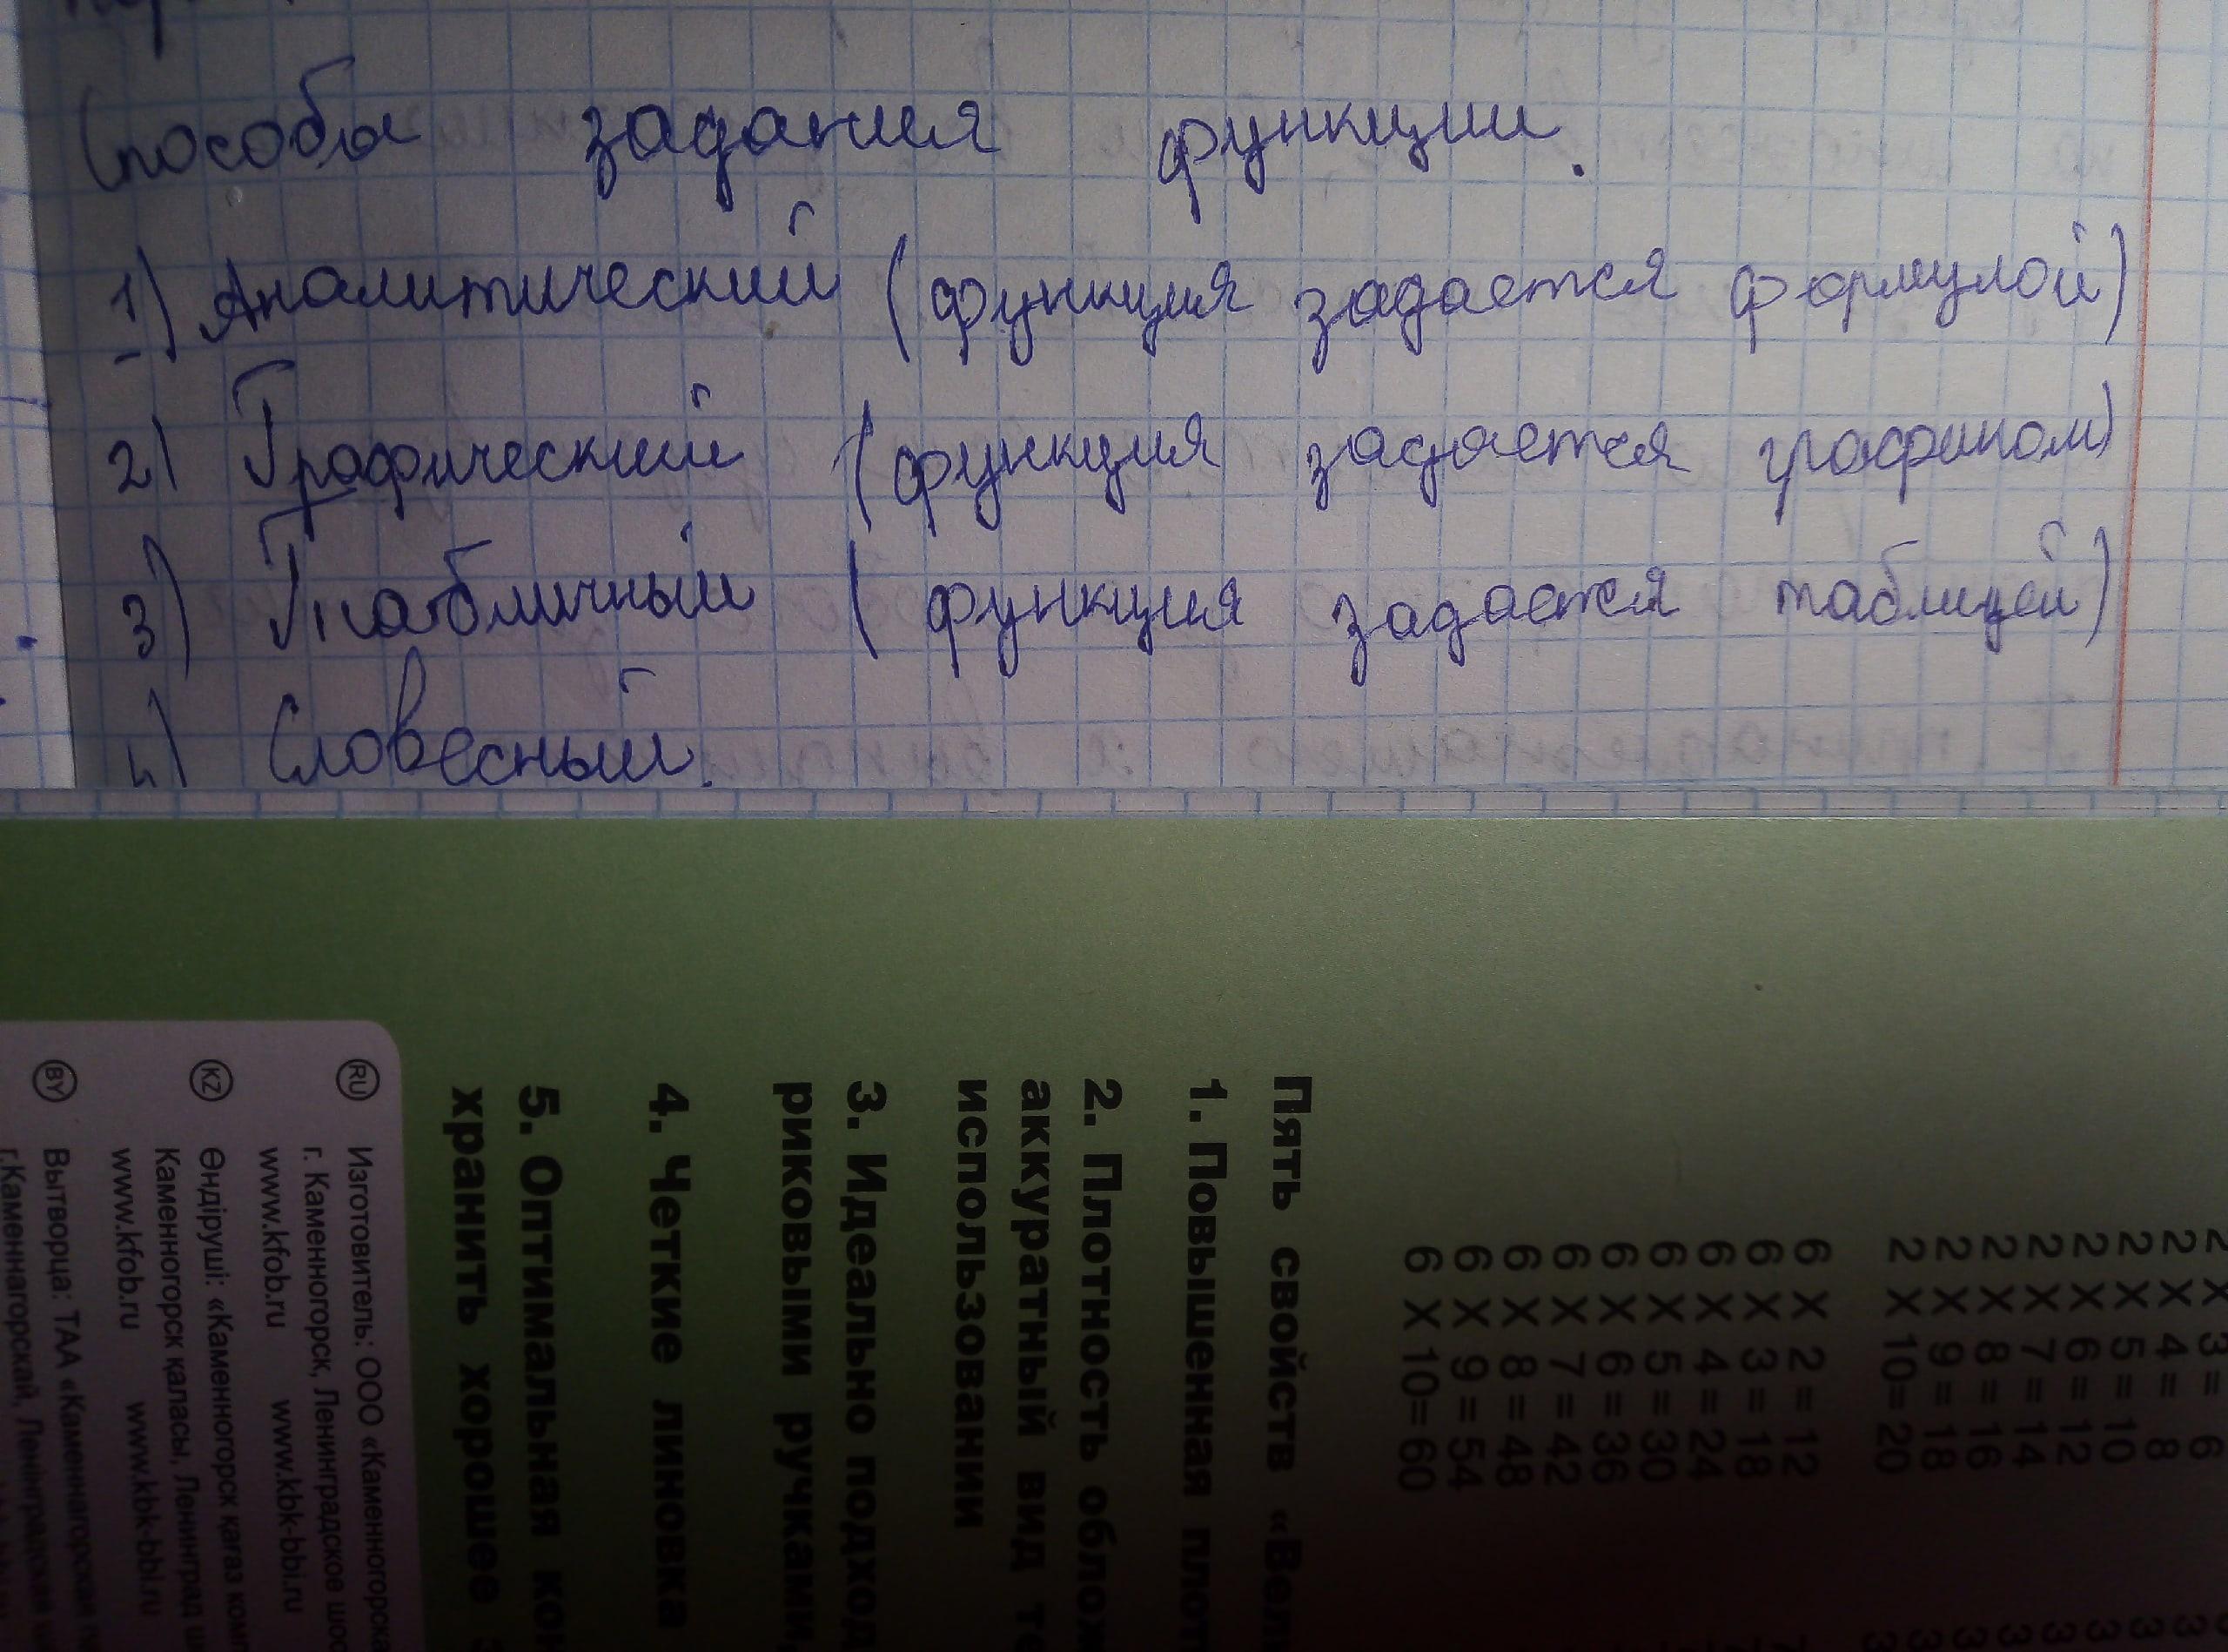 Способы задания функции.
1) Аналитический (функция задается формулой)
2) Графический (функция задается графиком)
3) Табличный (функция задается таблицей)
4) Словесный.
2 X 3 = 6
2 X 4 = 8
2 X 5 = 10
2 X 6 = 12
2 X 7 = 14
2 X 8 = 16
2 X 9 = 18
2 X 10 = 20
6 X 2 = 12
6 X 3 = 18
6 X 4 = 24
6 X 5 = 30
6 X 6 = 36
6 X 7 = 42
6 X 8 = 48
6 X 9 = 54
6 X 10 = 60
Пять свойств
1. Повышенная
2. Плотность
аккуратный вид
использовании
3. Идеально
риковыми ручками,
4. Четкие линовка
5. Оптимальная
хранить хорошее
RU Изготовитель: ООО
г. Каменногорск, Ленинградское
www.kfob.ru www.kbk-bbi.ru
KZ Өндіруші: «Каменногорск қағаз
Каменногорск қаласы, Ленинград
www.kfob.ru www.kbk-bbi.ru
BY Вытворца: ТАА «Каменнагорская
г.Каменнагорскай, Ленінградская